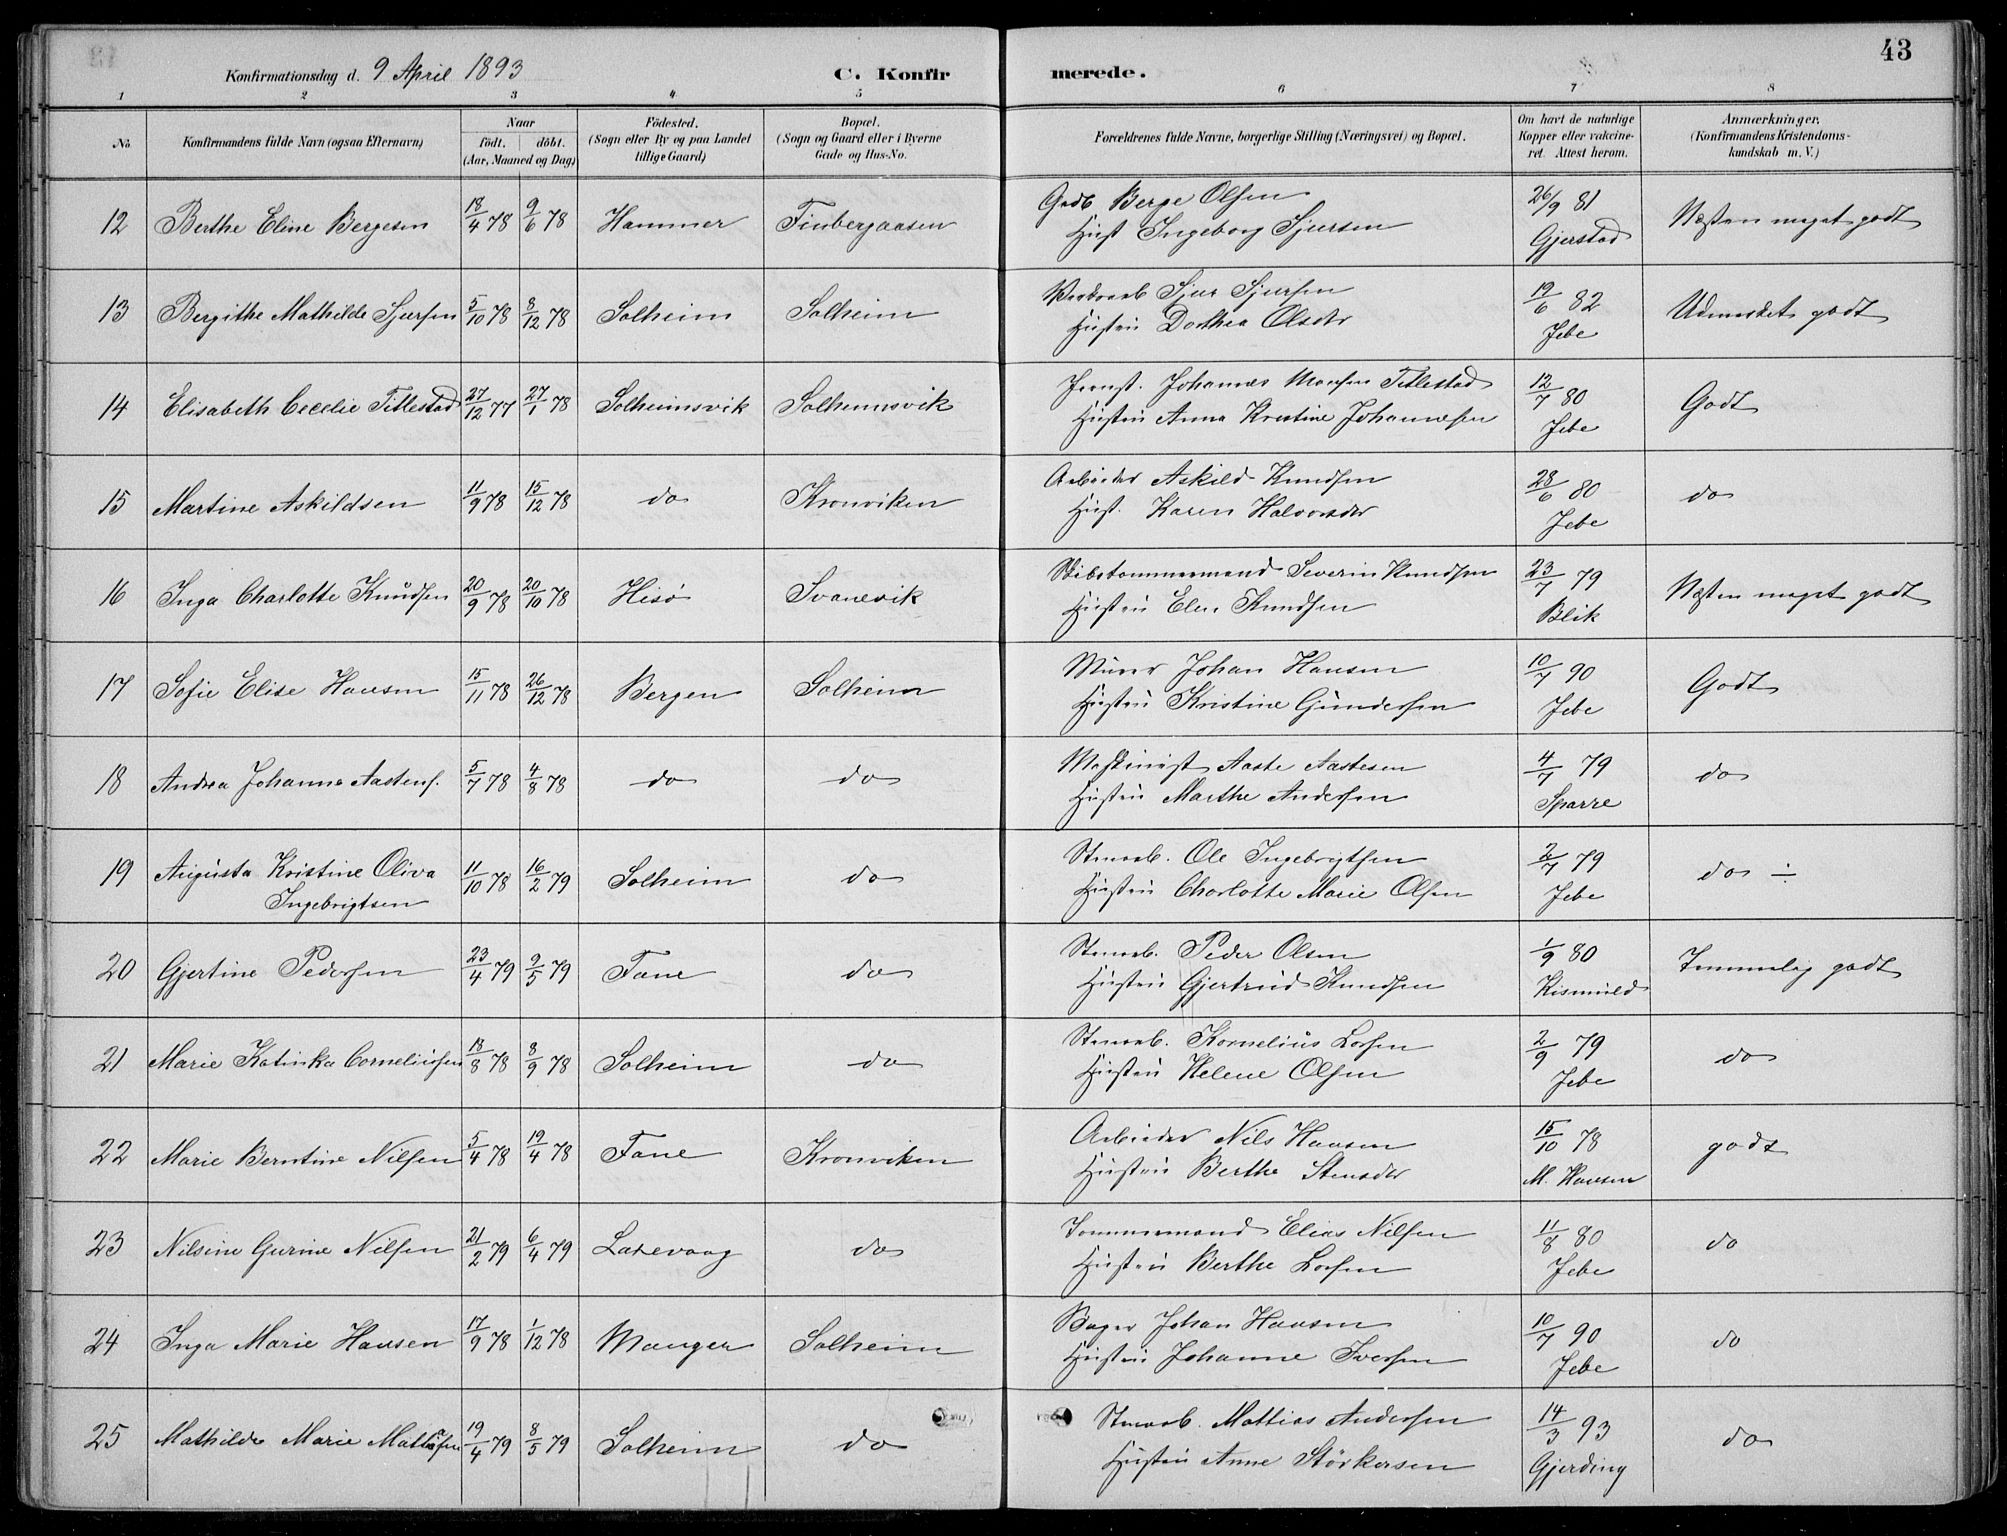 43
Konfirmationsdag d. 9 April 1893 C. Konfir merede.
1 2 3 4 5 6 7 8
No Konfirmandens fulde Navn (ogsaa Efternavn) Naar födt. döbt. (Aar, Maaned og Dag) Födested. (Sogn eller By og paa Landet tillige Gaard) Bopæl. (Sogn og Gaard eller i Byerne Gade og Hus-No. Forældrenes fulde Navne, borgerlige Stilling (Næringsvei) og Bopæl. Om havt de naturlige Kopper eller vakcineret. Attest herom. Anmærkninger. (Konfirmandens Kristendomskundskab m. V.)
12 Berthe Eline Bergesen 18/4 78 9/6 78 Hammer Finbergaasen Gadb Berge Olsen 26/9 81 Næsten meget godt
Hust Ingeborg Sjursen Gjerstad
13 Bergithe Mathilde Sjursen 5/10 78 8/12 78 Solheim Solheim Sjur Sjursen 19/6 82 Udmerket godt
Hustru Dorthea Olsdtr Jebe
14 Elisabeth Cecelie Titlestad 27/12 77 27/1 78 Solheimsvik Solheimsvik Jernst. Johannes Monsen Titlestad 12/7 80 Godt
Hustru Anna Kristine Johannesen Jebe
15 Martine Askildsen 11/9 78 15/12 78 do Kronviken Arbeider Askild Knudsen 28/6 80 do
Hust. Karen Halvorsdtr Jebe
16 Inga Charlotte Knudsen 20/9 78 20/10 78 Hisö Svanevik Skibstømmermand Severin Knudsen 23/7 79 Næsten meget godt
Hustru Eline Knudsen Blik
17 Sofie Elise Hansen 15/11 78 26/12 78 Bergen Solheim Murer Johan Hansen 10/7 90 Godt
Hustru Kristine Gundersen Jebe
18 Andrea Johanne Aastens. 5/7 78 4/8 78 do do Maskinist Aaste Aastesen 4/7 79 do
Hustru Marthe Andersen Sparre
19 Augusta Kristine Oliva 11/10 78 16/2 79 Solheim do Stenarb. Ole Ingebrigtsen 2/7 79 do ÷
Ingebrigtsen Hustru Charlotte Marie Olsen Jebe
20 Gjertine Pedersen 23/4 79 9/5 79 Fane do Stenarb. Peder Olsen 1/9 80 Temmelig godt
Hustru Gjertrud Knudsen Kismuld
21 Marie Katinka Corneliusen 18/8 78 8/9 78 Solheim do Stenarb. Kornelius Larsen 2/9 79 do
Hustru Helene Olsen Jebe
22 Marie Berntine Nilsen 5/4 78 19/4 78 Fane Kronviken Arbeider Nils Hansen 15/10 78 godt
Hustru Berthe Stensdtr M. Hansen
23 Nilsine Gurine Nilsen 21/2 79 6/4 79 Laxevaag do Tømmermand Elias Nilsen 11/8 80 do
Hustru Berthe Larsen Jebe
24 Inga Marie Hansen 17/9 78 1/12 78 Manger Solheim Bager Johan Hansen 10/7 90 do
Hustru Johanne Iversen Jebe
25 Mathilde Marie Mathiasen 19/4 79 8/5 79 Solheim do Stenarb. Mattias Andersen 14/3 93 do
Hustru Anne Störkersen Gjerding